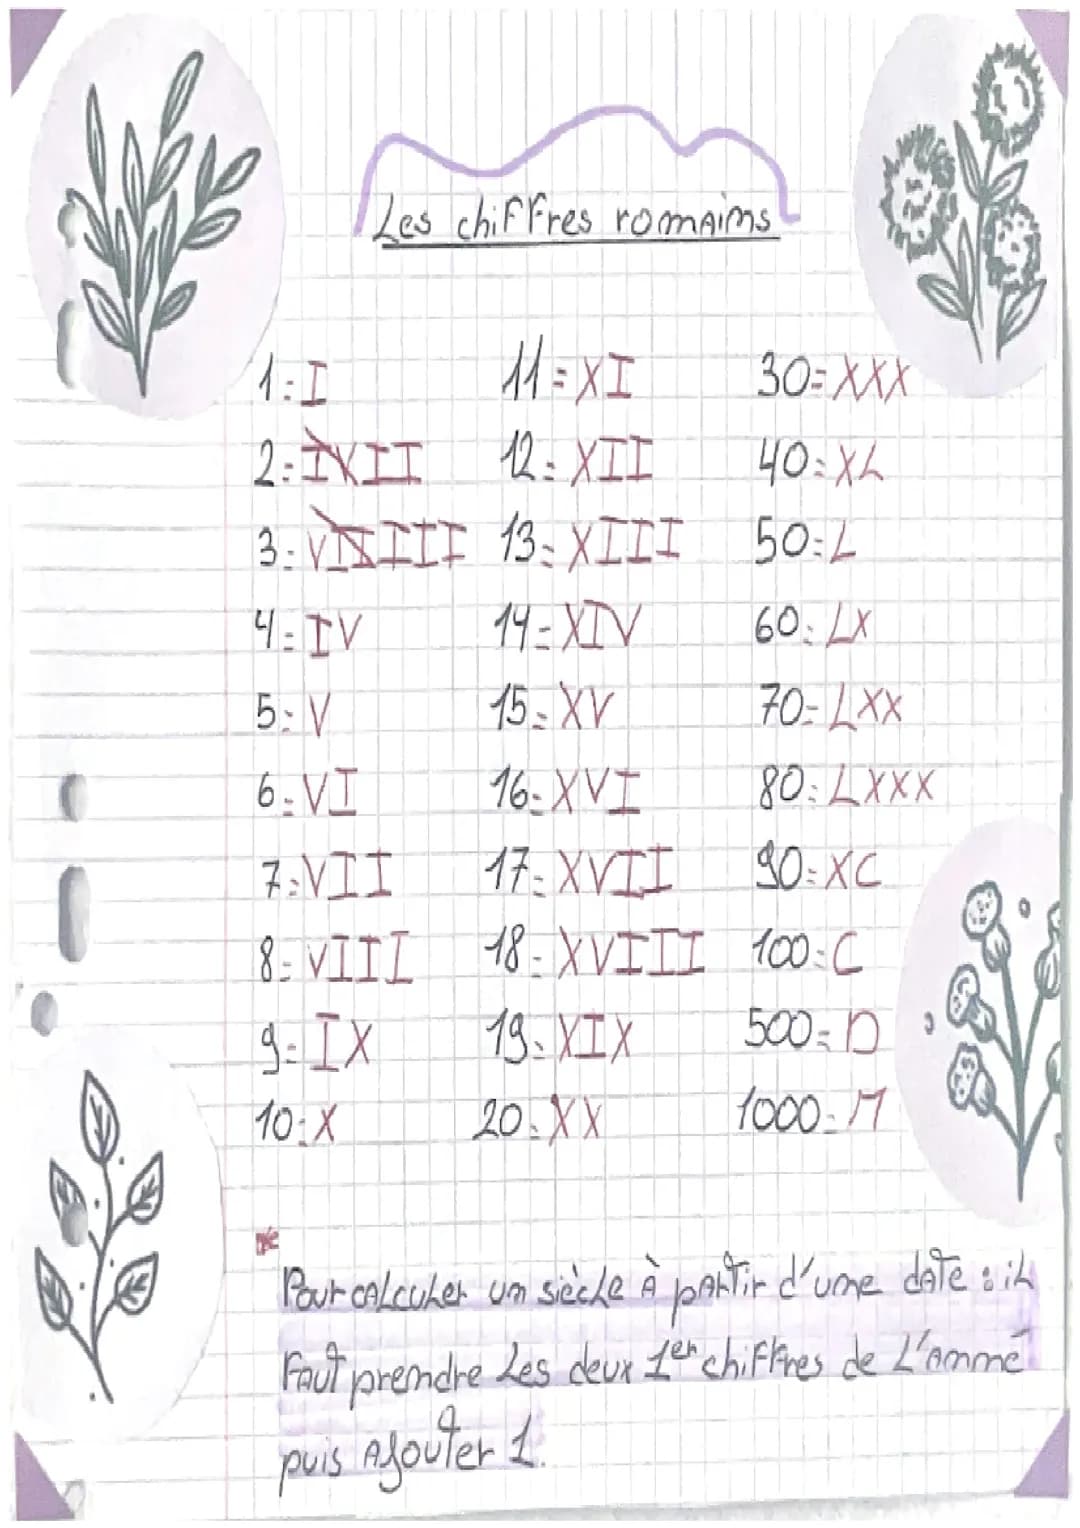 Les chiffres romains
1=I 11=XI 30=XXX
2=II 12=XII 40=XL
3=III 13=XIII 50=L
4=IV 14=XIV 60=LX
5=V 15=XV 70=LXX
6=VI 16=XVI 80=LXXX
7=VII 17=XVII 90=XC
8=VIII 18=XVIII 100=C
9=IX 19=XIX 500=D
10=X 20=XX 1000=M
Pour calculer un siècle à partir d'une date : il
faut prendre les deux 1er chiffres de l'anné
puis ajouter 1.